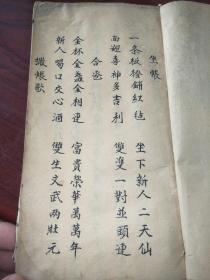 坐帳
一条板櫈鋪紅毡　坐下新人二天仙
面迎喜神多吉利　雙雙一對並頭連
合巹
金杯金盞金相連　富貴榮華萬萬年
新人喝口交心酒　雙生文武兩壯元
撒帳歌